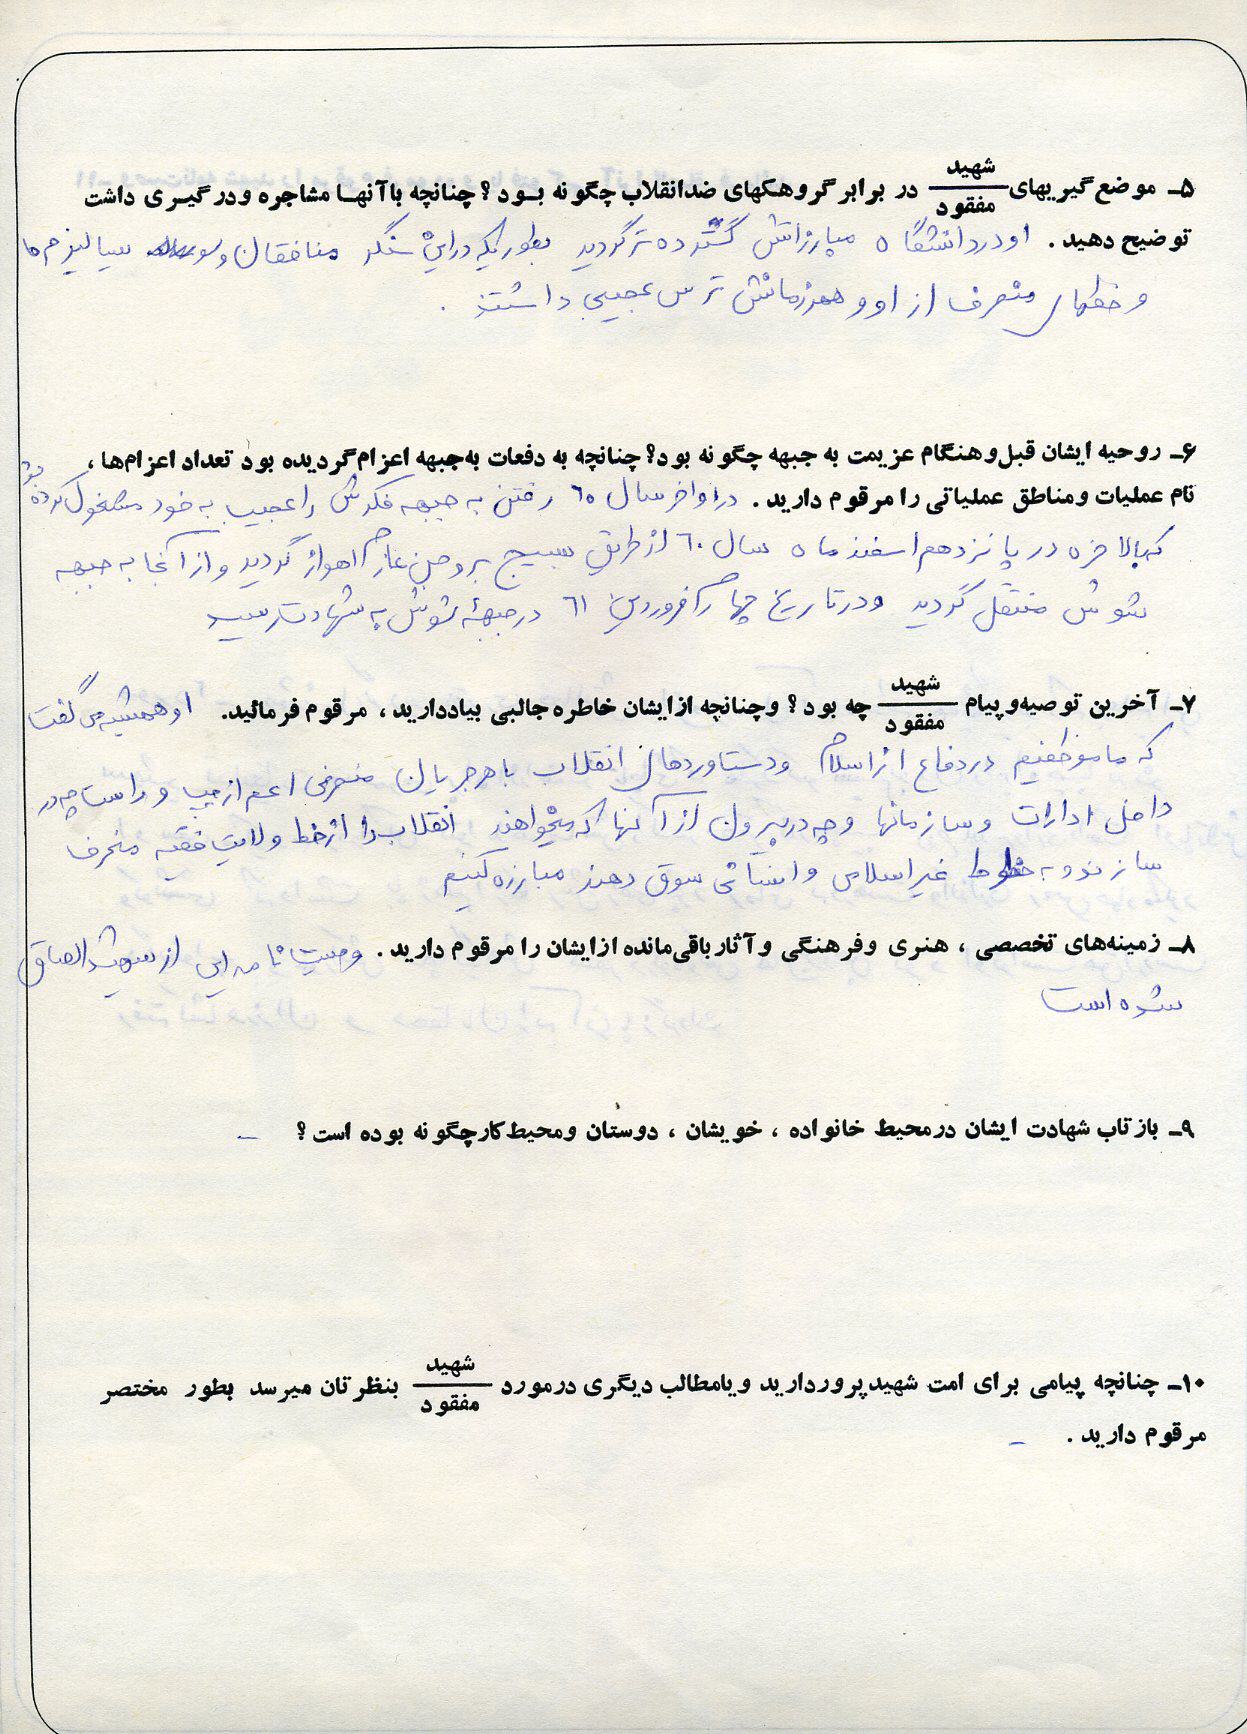 ۵ـ موضع‌گیریهای شهید / مفقود در برابر گروهکهای ضدانقلاب چگونه بود؟ چنانچه باآنها مشاجره ودرگیری داشت
توضیح دهید. او در دانشگاه مبارزاتش گسترده‌تر گردید بطوریکه در این سنگر منافقان و سیالیزم ها
و خطهای منحرف از او و همرزمانش ترس عجیبی داشتند.
۶ـ روحیه ایشان قبل وهنگام عزیمت به جبهه چگونه بود؟ چنانچه به دفعات به‌جبهه اعزام‌گردیده بود تعداد اعزام‌ها،
نام عملیات ومناطق عملیاتی را مرقوم دارید. در اواخر سال ٦٠ رفتن به جبهه فکرش را عجیب به خود مشغول کرده بود
که بالاخره در پانزدهم اسفند ماه سال ٦٠ از طریق بسیج بروجن عازم اهواز گردید و از آنجا به جبهه
شوش منتقل گردید و در تاریخ چهارم فروردین ٦١ در جبههٔ شوش به شهادت رسید
۷ـ آخرین توصیه‌وپیام شهید / مفقود چه بود؟ وچنانچه ازایشان خاطره جالبی بیاددارید، مرقوم فرمائید. او همیشه می گفت
که ما موظفیم در دفاع از اسلام و دستاوردهای انقلاب با هر جریان منحرفی اعم از چپ و راست چه در
داخل ادارات و سازمانها و چه در بیرون از آنها که میخواهند انقلاب را از خط ولایت فقیه منحرف
سازند و به خطوط غیر اسلامی و انسانی سوق دهند مبارزه کنیم
۸ـ زمینه‌های تخصصی، هنری وفرهنگی وآثارباقی‌مانده ازایشان را مرقوم دارید. وصیت نامه ایی از سوی شهید الصاق
شده است
۹ـ بازتاب شهادت ایشان درمحیط خانواده، خویشان، دوستان ومحیط‌کارچگونه بوده است؟ –
۱۰ـ چنانچه پیامی برای امت شهیدپروردارید ویامطالب دیگری درمورد شهید / مفقود بنظرتان میرسد بطور مختصر
مرقوم دارید. –